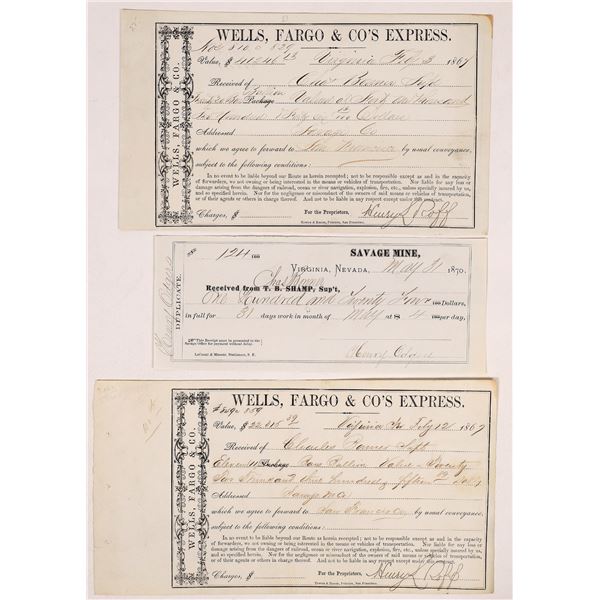 WELLS, FARGO & CO'S EXPRESS.
WELLS, FARGO & CO.
Value, $ Virginia Feby 3 1867
Received of Chas Bonner Supt
Package Value
Two Hundred & Forty Six Dollars
Addressed Savage Co
which we agree to forward to San Francisco by usual conveyance,
subject to the following conditions:
In no event to be liable beyond our Route as herein receipted; not to be responsible except as and in the capacity
of forwarders, we not owning or being interested in the means or vehicles of transportation. Nor liable for any loss or
damage arising from the dangers of railroad, ocean or river navigation, explosion, fire, etc., unless specially insured by us,
and so specified herein. Nor for the negligence or misconduct of the owners of said means of transportation, or of their
agents or others in charge thereof. And not to be liable in any respect except under this contract.
Charges, $ For the Proprietors, Henry L Roff
Towne & Bacon, Printers, San Francisco.
SAVAGE MINE,
$ 124 00/100
VIRGINIA, NEVADA, May 31 1870.
DUPLICATE.
Chas Bonner
Received from T. B. SHAMP, Sup't,
One Hundred and Twenty Four 100 Dollars,
in full for 31 days work in month of May at $ 4 100 per day,
This Receipt must be presented to the
Savage Office for payment without delay.
LeCount & Mansur, Stationers, S. F.
Henry
WELLS, FARGO & CO'S EXPRESS.
WELLS, FARGO & CO.
Value, $ 22.615 39 Virginia Nv July 12 1867
Received of Charles Bonner Supt
Eleven Package Bars Bullion Value Twenty
Two Thousand Six Hundred & fifteen 39 Dolls
Addressed Savage M Co
which we agree to forward to San Francisco by usual conveyance,
subject to the following conditions:
In no event to be liable beyond our Route as herein receipted; not to be responsible except as and in the capacity
of forwarders, we not owning or being interested in the means or vehicles of transportation. Nor liable for any loss or
damage arising from the dangers of railroad, ocean or river navigation, explosion, fire, etc., unless specially insured by us,
and so specified herein. Nor for the negligence or misconduct of the owners of said means of transportation,
or of their agents or others in charge thereof. And not to be liable in any respect except under this contract.
Charges, $ For the Proprietors, Henry L Roff
Towne & Bacon, Printers, San Francisco.